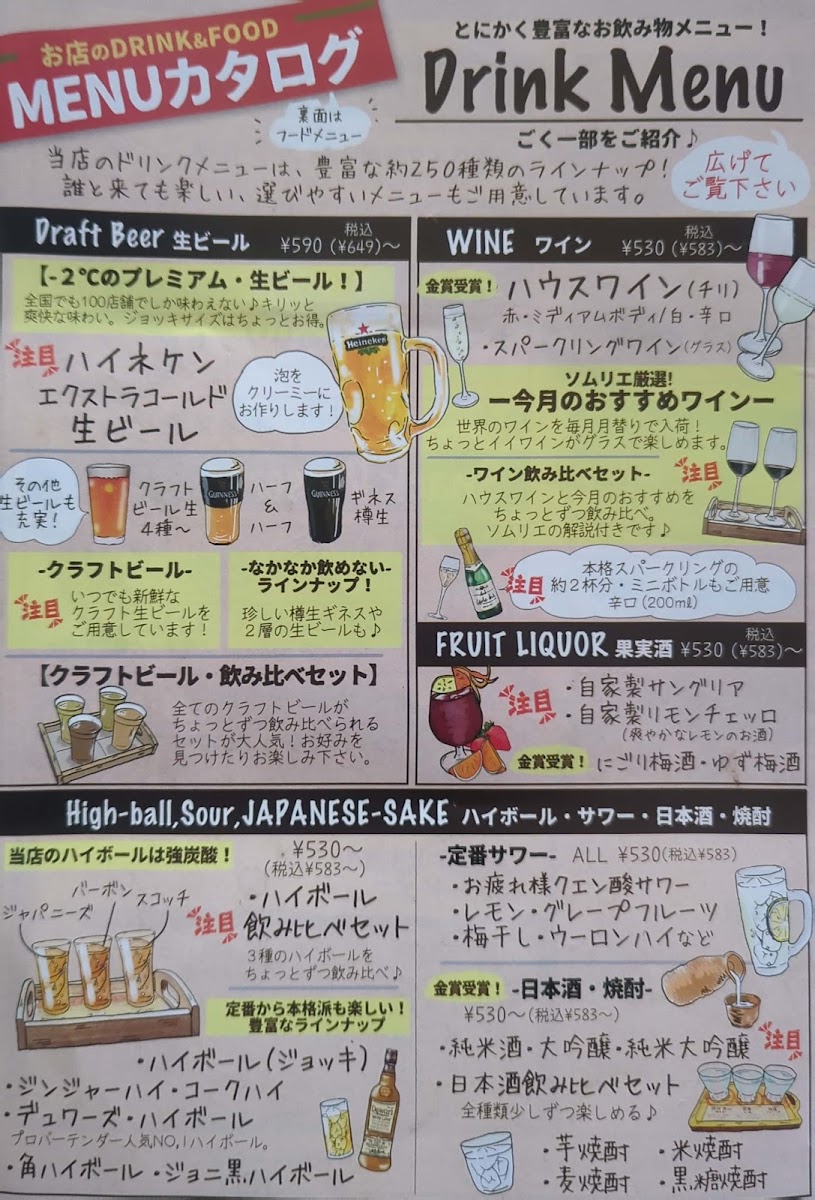 お店のDRINK&FOOD
MENUカタログ
裏面は
フードメニュー
とにかく豊富なお飲み物メニュー！
Drink Menu
ごく一部をご紹介♪
当店のドリンクメニューは、豊富な約250種類のラインナップ！
誰と来ても楽しい、選びやすいメニューもご用意しています。
広げて
ご覧下さい
Draft Beer 生ビール 税込 ¥590 (¥649)～
【-2℃のプレミアム・生ビール！】
全国でも100店舗でしか味わえない♪キリッと
爽快な味わい。ジョッキサイズはちょっとお得。
注目
ハイネケン
エクストラコールド
生ビール
泡を
クリーミーに
お作りします！
Heineken
その他
生ビールも
充実！
クラフト
ビール生
4種～
GUINNESS
ハーフ
&
ハーフ
GUINNESS
ギネス
樽生
-クラフトビール-
注目
いつでも新鮮な
クラフト生ビールを
ご用意しています！
-なかなか飲めない-
ラインナップ！
珍しい樽生ギネスや
2層の生ビールも♪
【クラフトビール・飲み比べセット】
全てのクラフトビールが
ちょっとずつ飲み比べられる
セットが大人気！お好みを
見つけたりお楽しみ下さい。
WINE ワイン 税込 ¥530 (¥583)～
金賞受賞！ ハウスワイン(チリ)
赤・ミディアムボディ/白・辛口
・スパークリングワイン(グラス)
ソムリエ厳選!
ー今月のおすすめワインー
世界のワインを毎月月替りで入荷！
ちょっとイイワインがグラスで楽しめます。
-ワイン飲み比べセット-
注目
ハウスワインと今月のおすすめを
ちょっとずつ飲み比べ。
ソムリエの解説付きです♪
注目
本格スパークリングの
約2杯分・ミニボトルもご用意
辛口(200ml)
FRUIT LIQUOR 果実酒 税込 ¥530 (¥583)～
注目
・自家製サングリア
・自家製リモンチェッロ
(爽やかなレモンのお酒)
金賞受賞！ にごり梅酒・ゆず梅酒
High-ball,Sour,JAPANESE-SAKE ハイボール・サワー・日本酒・焼酎
当店のハイボールは強炭酸！
¥530～
(税込¥583～)
ジャパニーズ
バーボン
スコッチ
注目
・ハイボール
飲み比べセット
3種のハイボールを
ちょっとずつ飲み比べ♪
定番から本格派も楽しい！
豊富なラインナップ
・ハイボール(ジョッキ)
・ジンジャーハイ・コークハイ
・デュワーズ・ハイボール
プロバーテンダー人気NO,1ハイボール。
・角ハイボール・ジョニ黒ハイボール
-定番サワー- ALL ¥530(税込¥583)
・お疲れ様クエン酸サワー
・レモン・グレープフルーツ
・梅干し・ウーロンハイなど
金賞受賞！ -日本酒・焼酎-
¥530～(税込¥583～)
・純米酒・大吟醸・純米大吟醸
注目
・日本酒飲み比べセット
全種類少しずつ楽しめる♪
・芋焼酎 ・米焼酎
・麦焼酎 ・黒糖焼酎